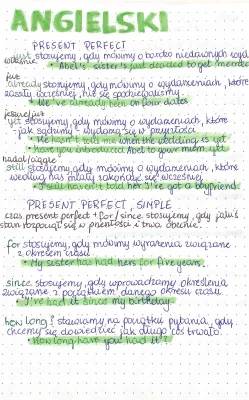 ANGIELSKI
PRESENT PERFECT
just stosujemy, gdy mówimy o bardzo niedawnych wyd
właśnie
• Abel's sister's just decided to get married
już
already stosujemy, gdy mówimy o wydarzeniach, które
zaszły wcześniej, niż się spodziewaliśmy.
• We've already been on four dates
jeszcze/już
yet stosujemy, gdy mówimy o wydarzeniach, które
- jak sądzimy - wydarzą się w przyszłości
• He hasn't told me when the wedding is yet
• have you introduced Abel to your mum yet
nadal/ciągle
still stosujemy, gdy mówimy o wydarzeniach, które
według nas miały zakończyć się wcześniej.
• I still haven't told her I've got a boyfriend.
PRESENT PERFECT, SIMPLE
czas present perfect + for/since stosujemy, gdy jakiś
stan rozpoczął się w przeszłości i trwa obecnie.
for stosujemy, gdy mówimy wyrażenia związane
z okresem czasu
• My sister has had hers for five years,
since stosujemy, gdy wprowadzamy określenia
związane z początkiem danego okresu czasu.
• I've had it since my birthday
how long? stawiamy na początku pytania, gdy
chcemy się dowiedzieć jak długo coś trwało.
• How long have you had it?